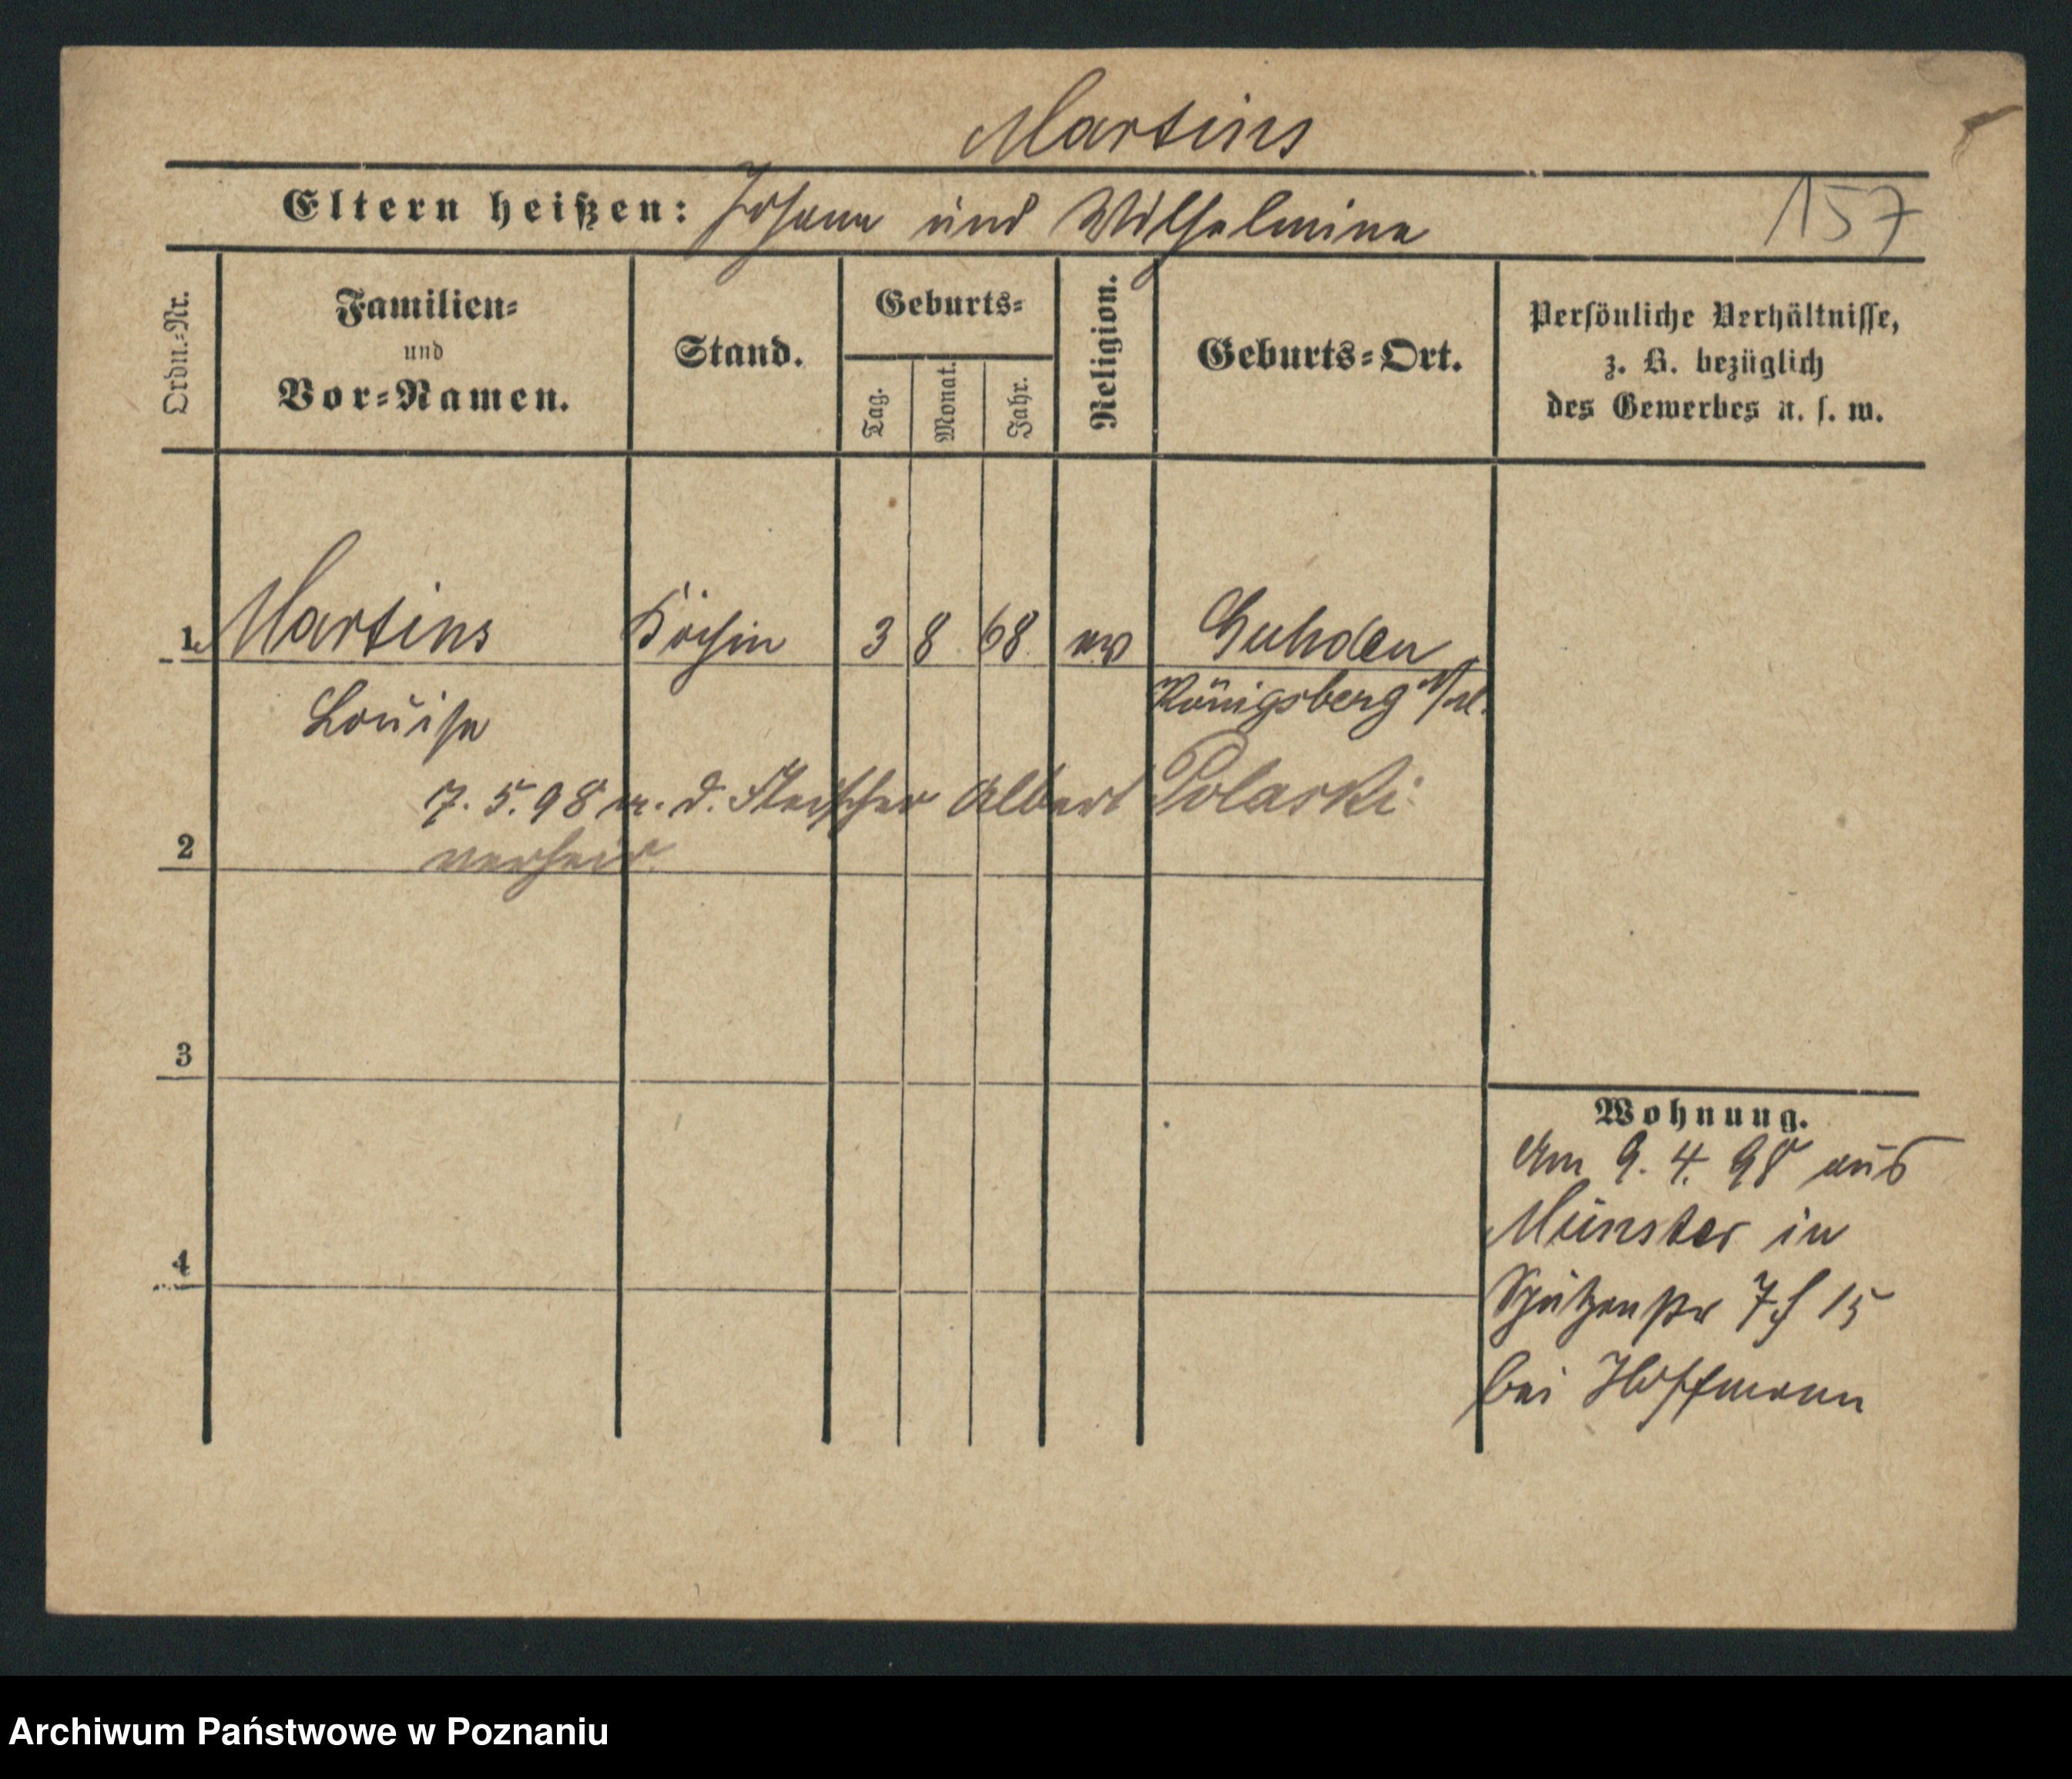 Martins
Eltern heißen: Johann und Wilhelmine
157
Ordn.-Nr.
Familien-
und
Vor-Namen.
Stand.
Geburts-
Tag.
Monat.
Jahr.
Religion.
Geburts-Ort.
Persönliche Verhältnisse,
z. B. bezüglich
des Gewerbes u. s. w.
1 Martins Köchin 3 8 68 ev Guhden
Louise Königsberg N/M.
7. 5. 98 m. d. Fleischer Albert Polaski
2 verheir.
3
Wohnung.
Am 9. 4. 98 aus
Münster in
4
Schützenstr 7 f 15
bei Hoffmann
Archiwum Państwowe w Poznaniu